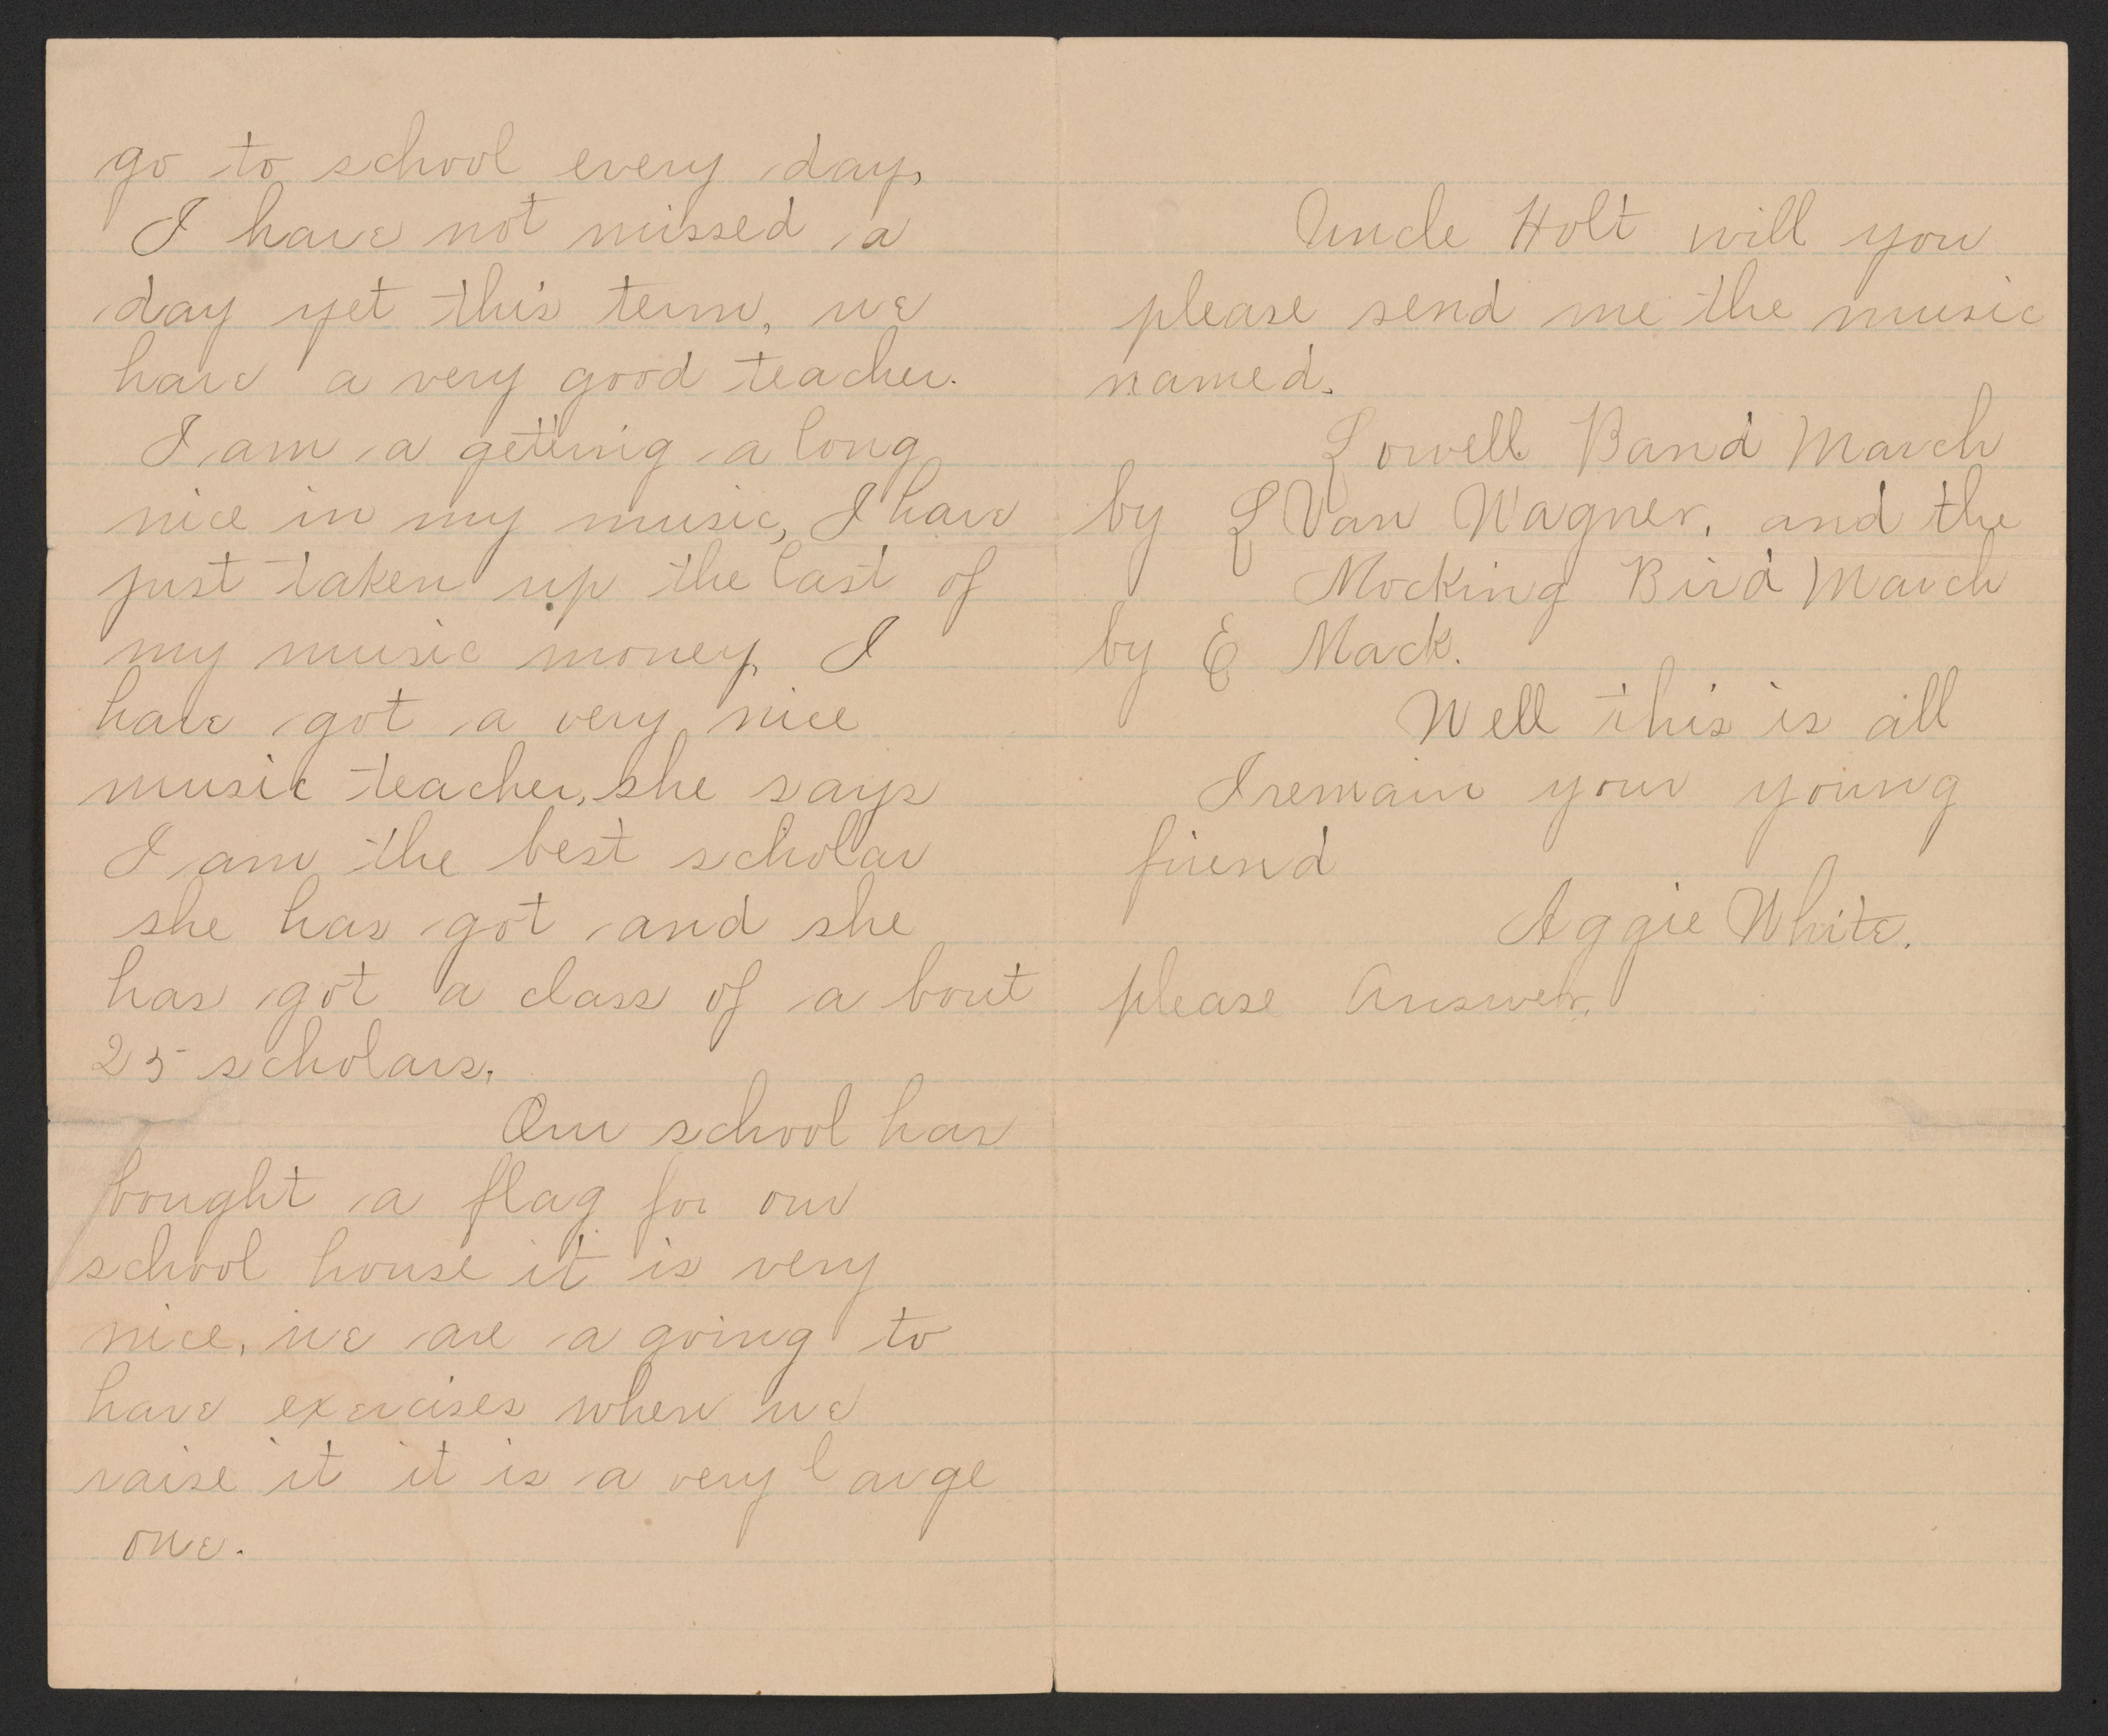 go to school every day,
I have not missed a
day yet this term, we
have a very good teacher.
I am a getting a long
nice in my music, I have
just taken up the last of
my music money, I
have got a very nice
music teacher, she says
I am the best scholar
she has got and she
has got a class of a bout
25 scholars.
Our school has
bought a flag for our
school house it is very
nice, we are a going to
have exercises when we
raise it it is a very large
one.
Uncle Holt will you
please send me the music
named.
Lowell Band March
by L Van Wagner, and the
Mocking Bird March
by E Mack.
Well this is all
I remain your young
friend
Aggie White.
please Answer.